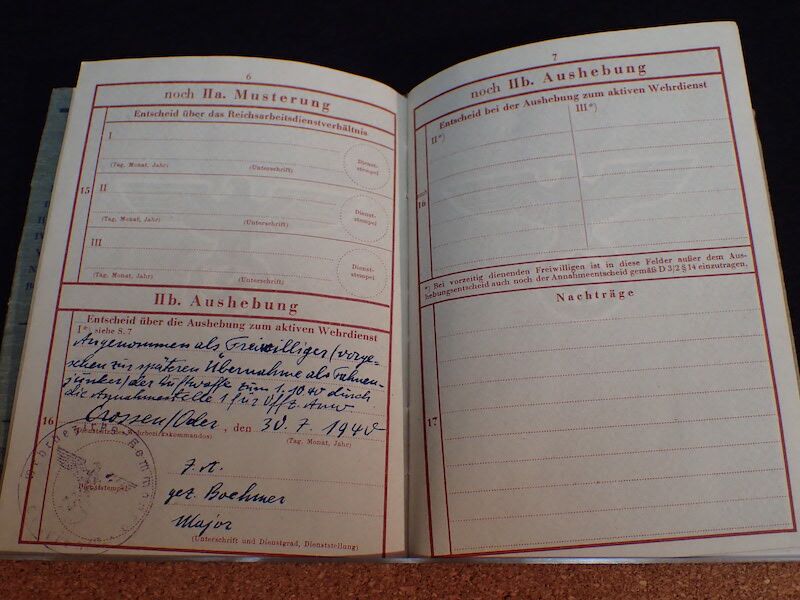 6
noch IIa. Musterung
Entscheid über das Reichsarbeitsdienstverhältnis
I
(Tag, Monat, Jahr) (Unterschrift) Dienst-
stempel
15
II
(Tag, Monat, Jahr) (Unterschrift) Dienst-
stempel
III
(Tag, Monat, Jahr) (Unterschrift) Dienst-
stempel
IIb. Aushebung
Entscheid über die Aushebung zum aktiven Wehrdienst
I*) siehe S. 7
Angenommen als Freiwilliger (vorge-
sehen zur späteren Übernahme als Fahnen-
junker) der Luftwaffe zum 1.10.40 durch
die Annahmestelle 1 für Offz. Anw
16
Crossen/Oder, den 30. 7. 1940
(Dienstsitz des Wehrbezirkskommandos) (Tag, Monat, Jahr)
Dienststempel
gez. Boehmer
Major
(Unterschrift und Dienstgrad, Dienststellung)
7
noch IIb. Aushebung
Entscheid bei der Aushebung zum aktiven Wehrdienst
II*) III*)
noch
16
*) Bei vorzeitig dienenden Freiwilligen ist in diese Felder außer dem Aus-
hebungsentscheid auch noch der Annahmeentscheid gemäß D 3/2 § 14 einzutragen.
Nachträge
17